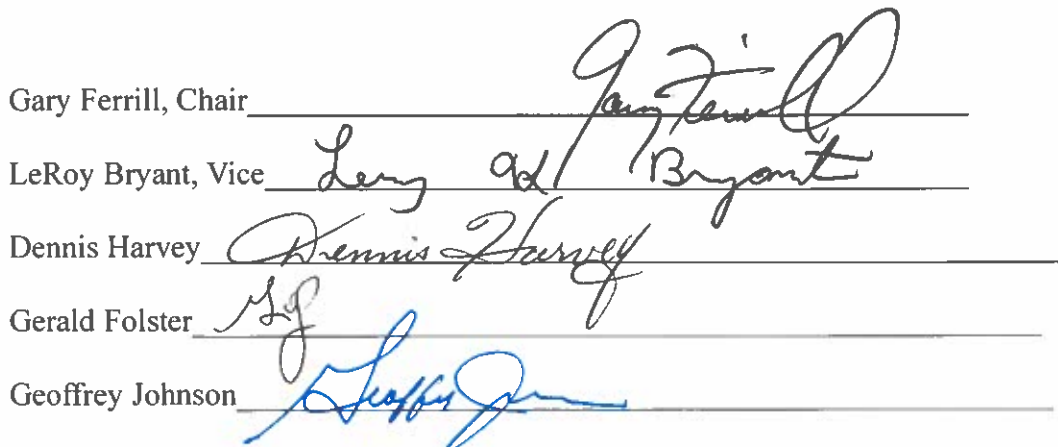 Gary Ferrill, Chair Gary Ferrill
LeRoy Bryant, Vice Leroy Bryant
Dennis Harvey Dennis Harvey
Gerald Folster
Geoffrey Johnson